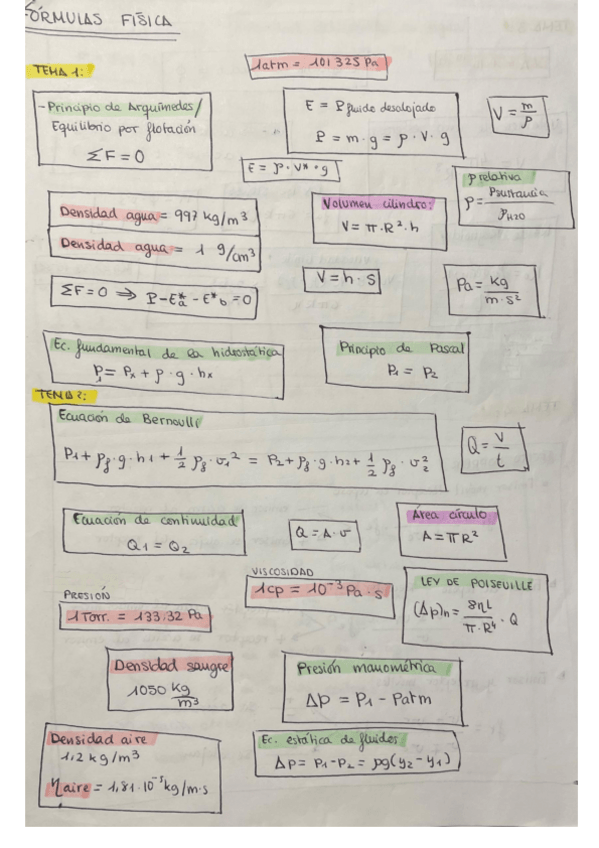 FÓRMULAS FÍSICA
TEMA 1:
1atm = 101325 Pa
- Principio de Arquímedes/
Equilibrio por flotación
ΣF = 0
E = P fluido desalojado
P = m · g = ρ · V · g
V = m/ρ
E = ρ · V* · g
ρ relativa
ρ = ρsustancia/ρH2O
Densidad agua = 997 kg/m³
Densidad agua = 1 g/cm³
Volumen cilindro:
V = π · R² · h
ΣF = 0 ⇒ P - E*a - E*b = 0
V = h · s
Pa = kg/m · s²
Ec. fundamental de la hidrostática
P1 = Px + ρ · g · hx
Principio de Pascal
P1 = P2
TEMA 2:
Ecuación de Bernoulli
P1 + ρf · g · h1 + 1/2 ρf · v1² = P2 + ρf · g · h2 + 1/2 ρf · v2²
Q = V/t
Ecuación de continuidad
Q1 = Q2
Q = A · v
Área círculo
A = πR²
PRESIÓN
1 Torr. = 133.32 Pa
VISCOSIDAD
1cp = 10⁻³ Pa · s
LEY DE POISEUILLE
(Δp)n = 8ηL/π · R⁴ · Q
Densidad sangre
1050 kg/m³
Presión manométrica
Δp = P1 - Patm
Densidad aire
1,2 kg/m³
ηaire = 1,81 · 10⁻⁵ kg/m·s
Ec. estática de fluidos
Δp = P1 - P2 = ρg(y2 - y1)